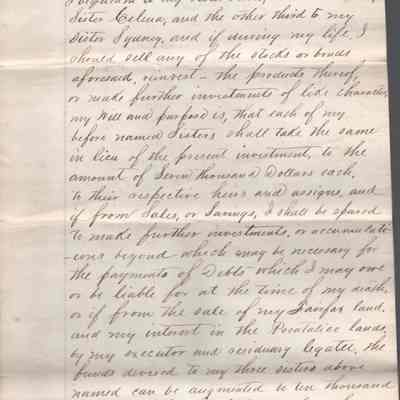 Sister Celina, and the other third to my
Sister Sydney, and if during my life, I
should sell any of the stocks or bonds
aforesaid, reinvest - the products thereof,
or make further investments of like character,
my Will and purpose is, that each of my
before named Sisters shall take the same
in lieu of the present investment, to the
amount of Seven thousand Dollars each,
to their respective heirs and assigns, and
if from Sales, or Savings, I shall be spared
to make further investments, or accumulati
-ons beyond which may be necessary for
the payments of Debts which I may owe
or be liable for at the time of my death,
or if from the sale of my Fairfax land,
and my interest in the Pocatalico lands,
by my executor and residuary legatee, the
funds devised to my three sisters above
named can be augmented to ten thousand